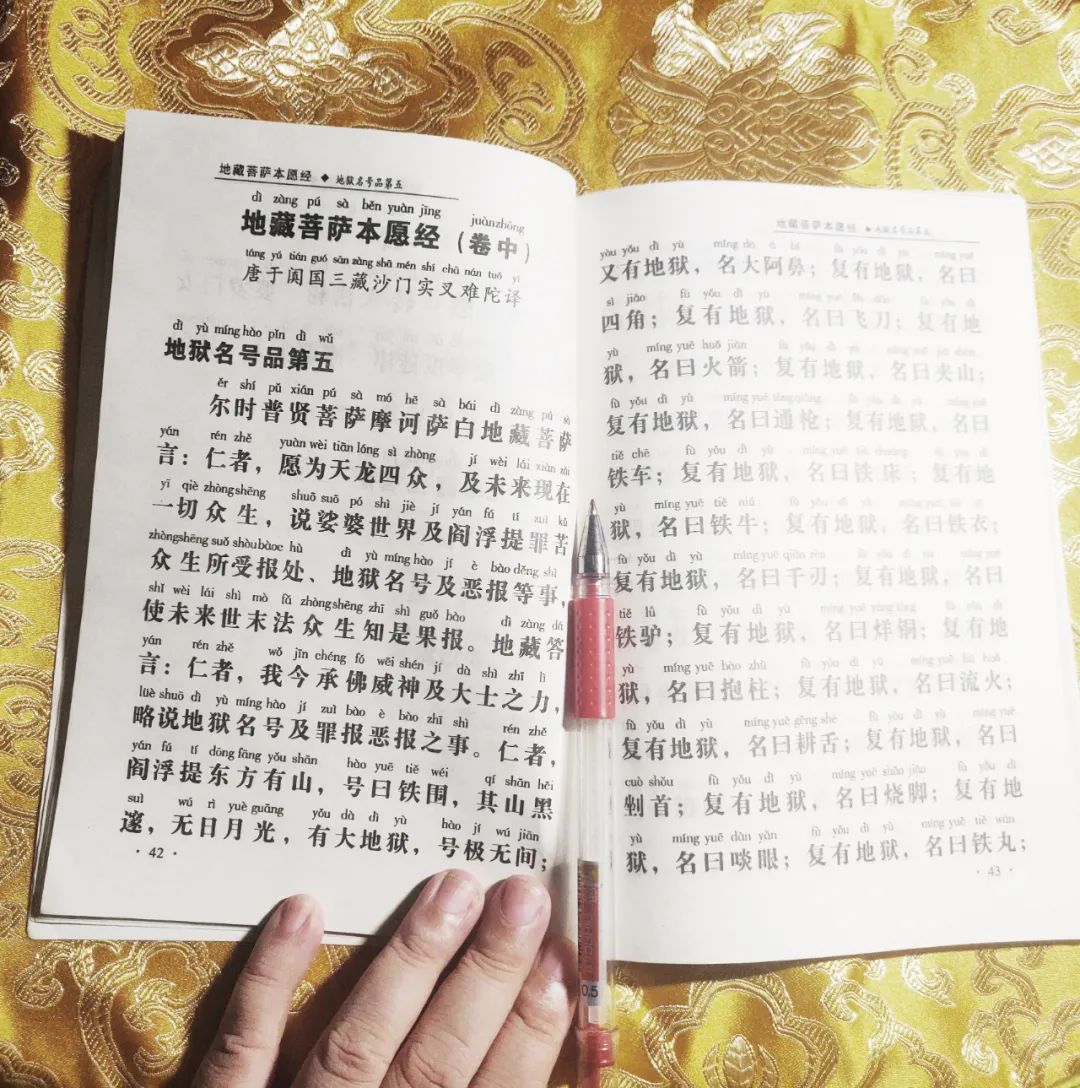 地藏菩萨本愿经 ◆ 地狱名号品第五
dì zàng pú sà běn yuàn jīng juànzhōng
地藏菩萨本愿经（卷中）
táng yú tián guó sān zàng shā mén shí chā nán tuó yì
唐于阗国三藏沙门实叉难陀译
dì yù míng hào pǐn dì wǔ
地狱名号品第五
ěr shí pǔ xián pú sà mó hē sà bái dì zàng pú sà
尔时普贤菩萨摩诃萨白地藏菩萨
yán rén zhě yuàn wèi tiān lóng sì zhòng jí wèi lái xiàn zài
言：仁者，愿为天龙四众，及未来现在
yī qiè zhòng shēng shuō suō pó shì jiè jí yán fú tí zuì kǔ
一切众生，说娑婆世界及阎浮提罪苦
zhòng shēng suǒ shòu bào chù dì yù míng hào jí è bào děng shì
众生所受报处、地狱名号及恶报等事，
shǐ wèi lái shì mò fǎ zhòng shēng zhī shì guǒ bào dì zàng dá
使未来世末法众生知是果报。地藏答
yán rén zhě wǒ jīn chéng fó wēi shén jí dà shì zhī lì
言：仁者，我今承佛威神及大士之力，
lüè shuō dì yù míng hào jí zuì bào è bào zhī shì rén zhě
略说地狱名号及罪报恶报之事。仁者，
yán fú tí dōng fāng yǒu shān hào yuē tiě wéi qí shān hēi
阎浮提东方有山，号曰铁围，其山黑
suì wú rì yuè guāng yǒu dà dì yù hào jí wú jiān
邃，无日月光，有大地狱，号极无间；
· 42 ·
地藏菩萨本愿经 ◆ 地狱名号品第五
yòu yǒu dì yù míng dà ā bí fù yǒu dì yù míng yuē
又有地狱，名大阿鼻；复有地狱，名曰
sì jiǎo fù yǒu dì yù míng yuē fēi dāo fù yǒu dì
四角；复有地狱，名曰飞刀；复有地
yù míng yuē huǒ jiàn fù yǒu dì yù míng yuē jiā shān
狱，名曰火箭；复有地狱，名曰夹山；
fù yǒu dì yù míng yuē tōng qiāng fù yǒu dì yù míng yuē
复有地狱，名曰通枪；复有地狱，名曰
tiě chē fù yǒu dì yù míng yuē tiě chuáng fù yǒu dì
铁车；复有地狱，名曰铁床；复有地
yù míng yuē tiě niú fù yǒu dì yù míng yuē tiě yī
狱，名曰铁牛；复有地狱，名曰铁衣；
fù yǒu dì yù míng yuē qiān rèn fù yǒu dì yù míng yuē
复有地狱，名曰千刃；复有地狱，名曰
tiě lǘ fù yǒu dì yù míng yuē yáng tóng fù yǒu dì
铁驴；复有地狱，名曰烊铜；复有地
yù míng yuē bào zhù fù yǒu dì yù míng yuē liú huǒ
狱，名曰抱柱；复有地狱，名曰流火；
fù yǒu dì yù míng yuē gēng shé fù yǒu dì yù míng yuē
复有地狱，名曰耕舌；复有地狱，名曰
cuò shǒu fù yǒu dì yù míng yuē shāo jiǎo fù yǒu dì
剉首；复有地狱，名曰烧脚；复有地
yù míng yuē dàn yǎn fù yǒu dì yù míng yuē tiě wán
狱，名曰啖眼；复有地狱，名曰铁丸；
· 43 ·
0.5